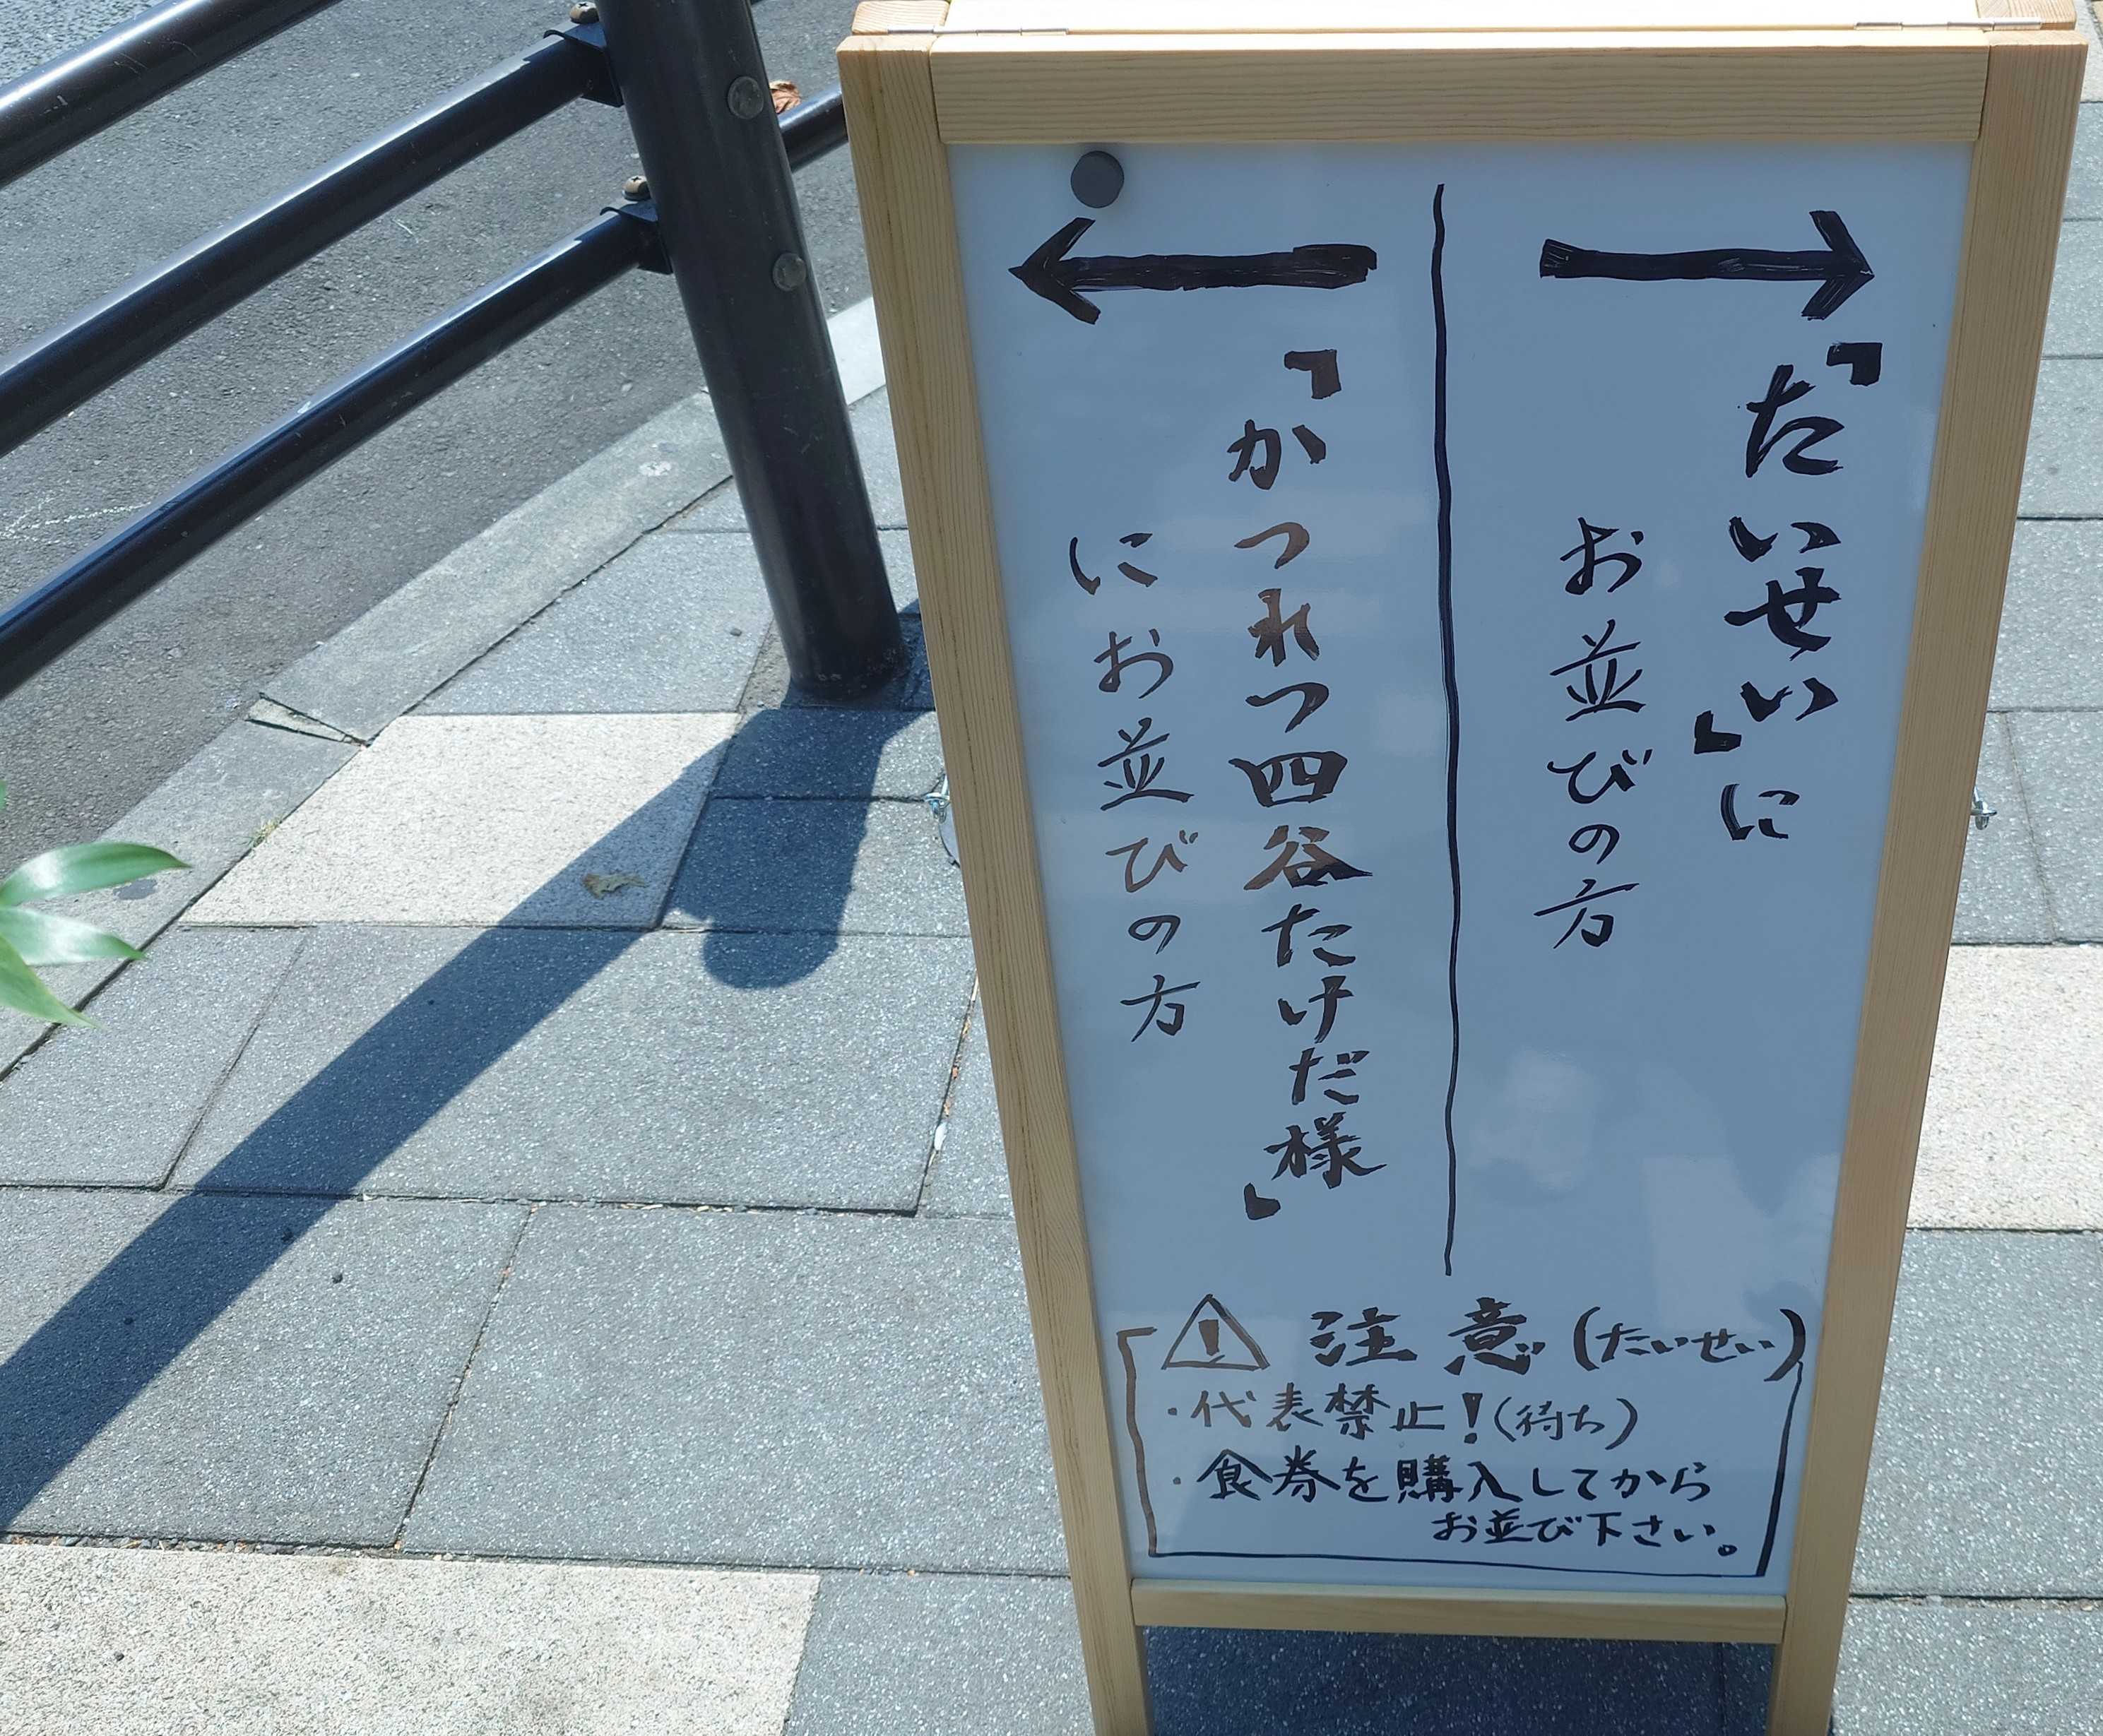 「たいせい」に
お並びの方
「かつれつ四谷たけだ様」
にお並びの方
注意(たいせい)
・代表禁止!(待ち)
・食券を購入してから
お並び下さい。